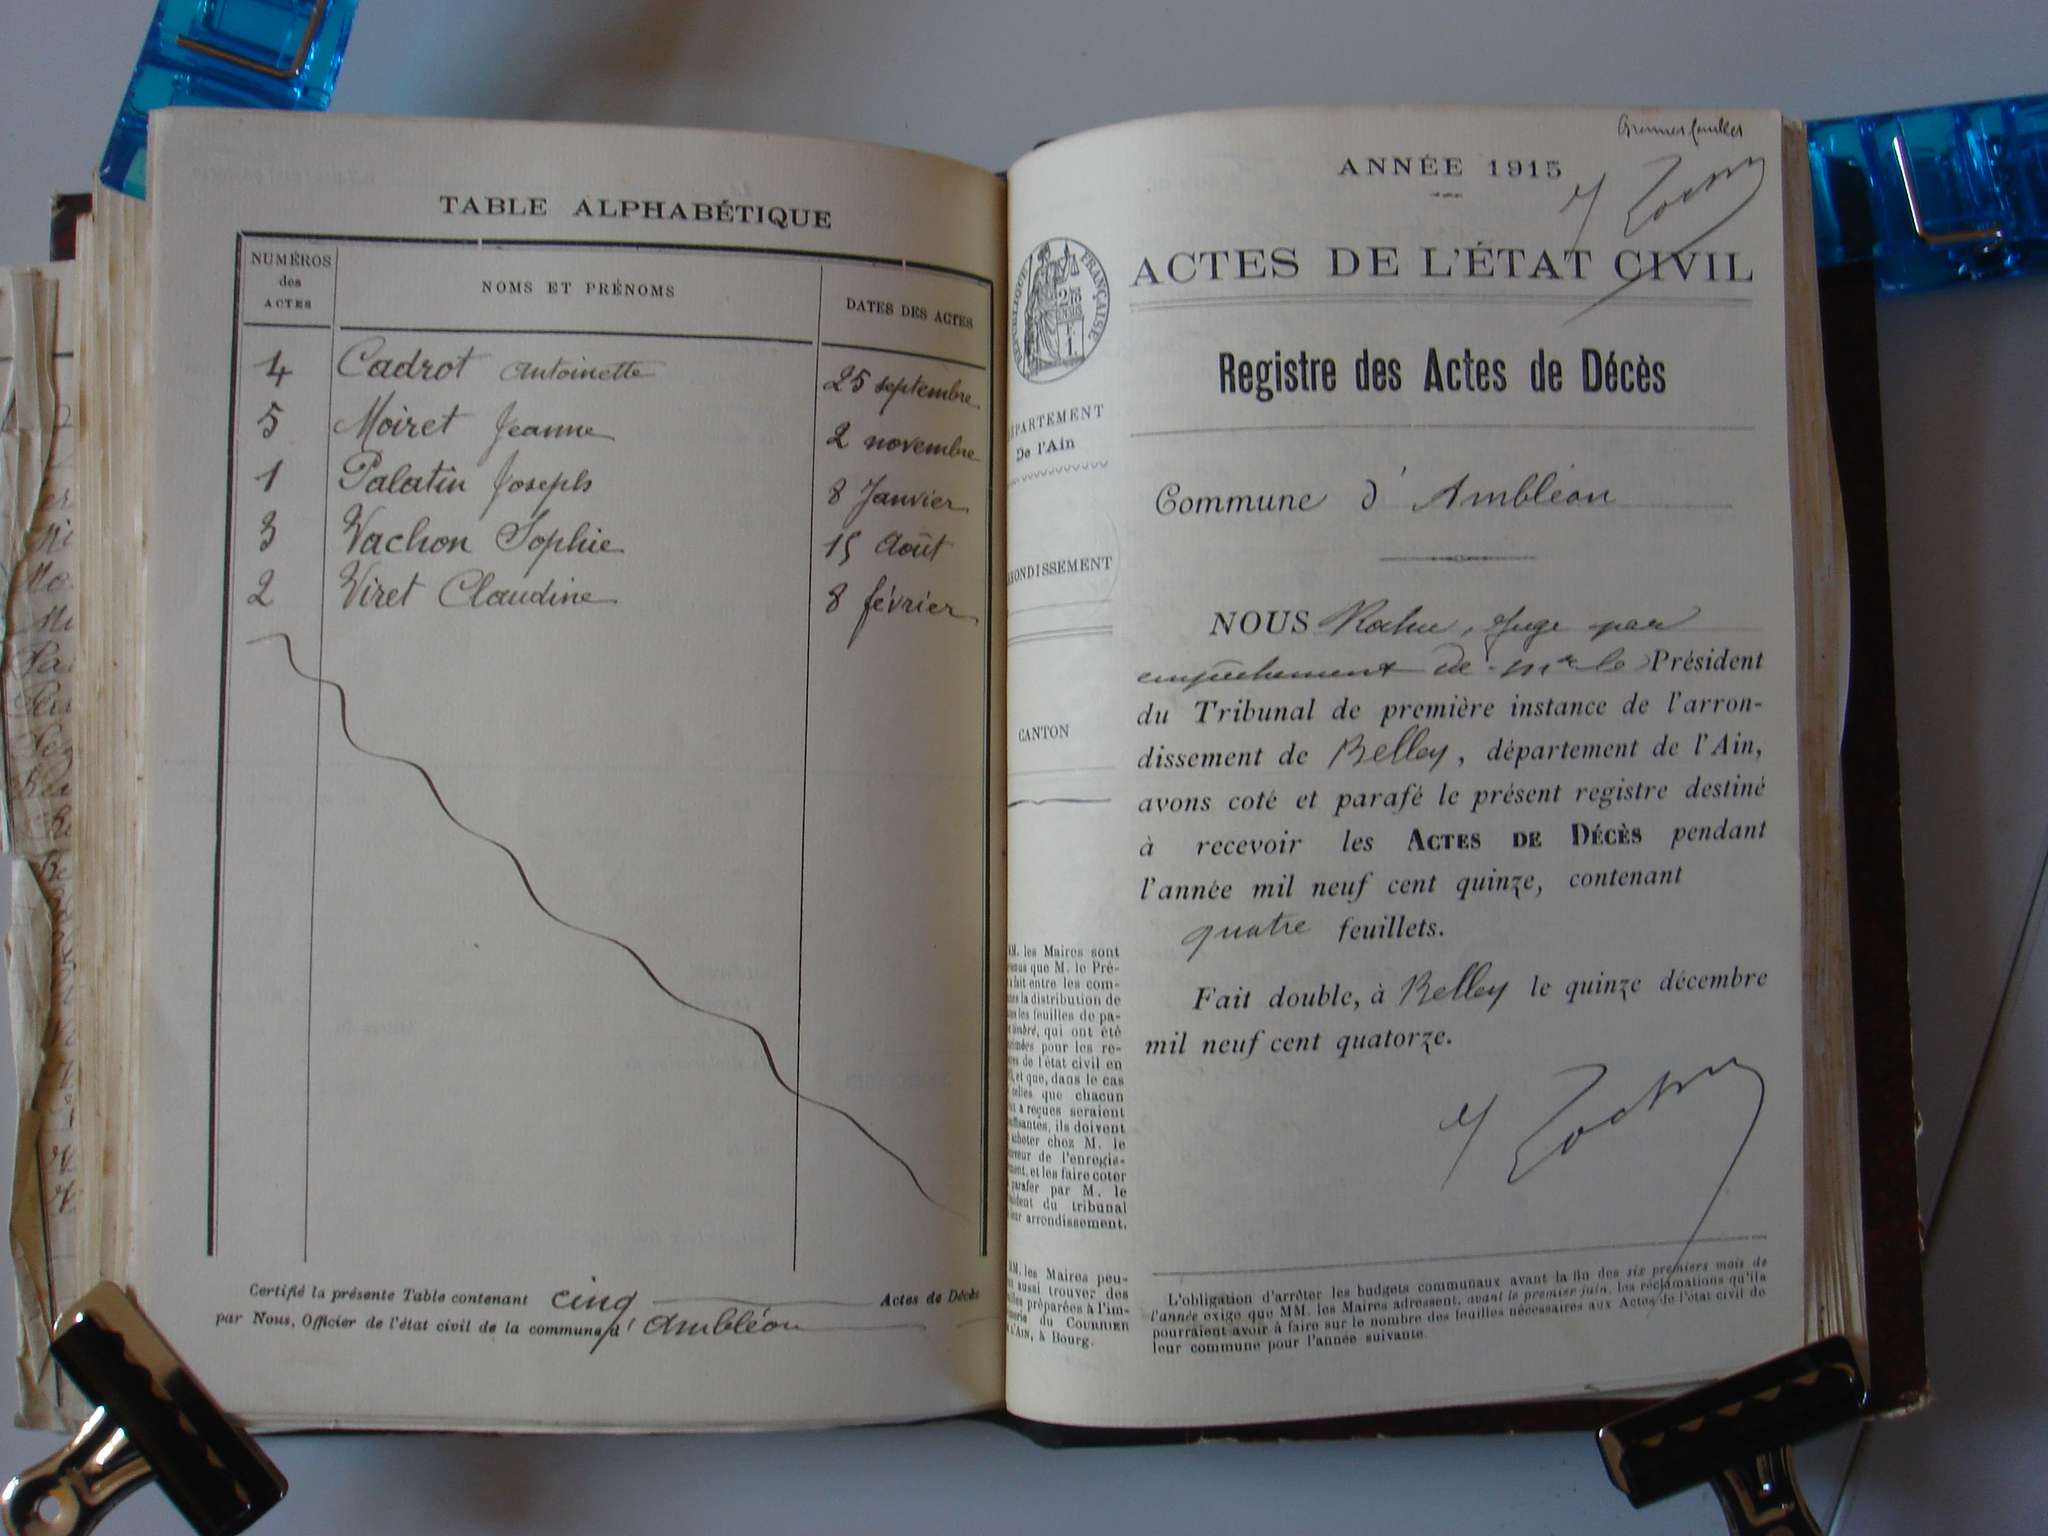 TABLE ALPHABÉTIQUE
NUMÉROS des ACTES
NOMS ET PRÉNOMS
DATES DES ACTES
4 Cadrot Antoinette 25 septembre
5 Moiret Jeanne 2 novembre
1 Palatin Joseph 8 Janvier
3 Vachon Sophie 15 Août
2 Viret Claudine 8 février
Certifié la présente Table contenant cinq Actes de Décès
par Nous, Officier de l'état civil de la commune d'Ambléon
ANNÉE 1915
ACTES DE L'ÉTAT CIVIL
RÉPUBLIQUE FRANÇAISE
Registre des Actes de Décès
De l'Ain
Commune d'Ambléon
CANTON
NOUS Juge par
empêchement de Mr le Président
du Tribunal de première instance de l'arron-
dissement de Belley, département de l'Ain,
avons coté et parafé le présent registre destiné
à recevoir les ACTES DE DÉCÈS pendant
l'année mil neuf cent quinze, contenant
quatre feuillets.
Fait double, à Belley le quinze décembre
mil neuf cent quatorze.
MM. les Maires sont
que M. le Pré-
fait entre les com-
la distribution de
les feuilles de pa-
timbré, qui ont été
pour les re-
de l'état civil en
et que, dans le cas
celles que chacun
a reçues seraient
ils doivent
acheter chez M. le
de l'enregis-
et les faire coter
parafer par M. le
du tribunal
leur arrondissement.
MM. les Maires peu-
aussi trouver des
préparées à l'im-
du COURRIER
L'AIN, à Bourg.
L'obligation d'arrêter les budgets communaux avant la fin des six premiers mois de
l'année exige que MM. les Maires adressent, avant le premier juin, les réclamations qu'ils
pourraient avoir à faire sur le nombre des feuilles nécessaires aux Actes de l'état civil de
leur commune pour l'année suivante.